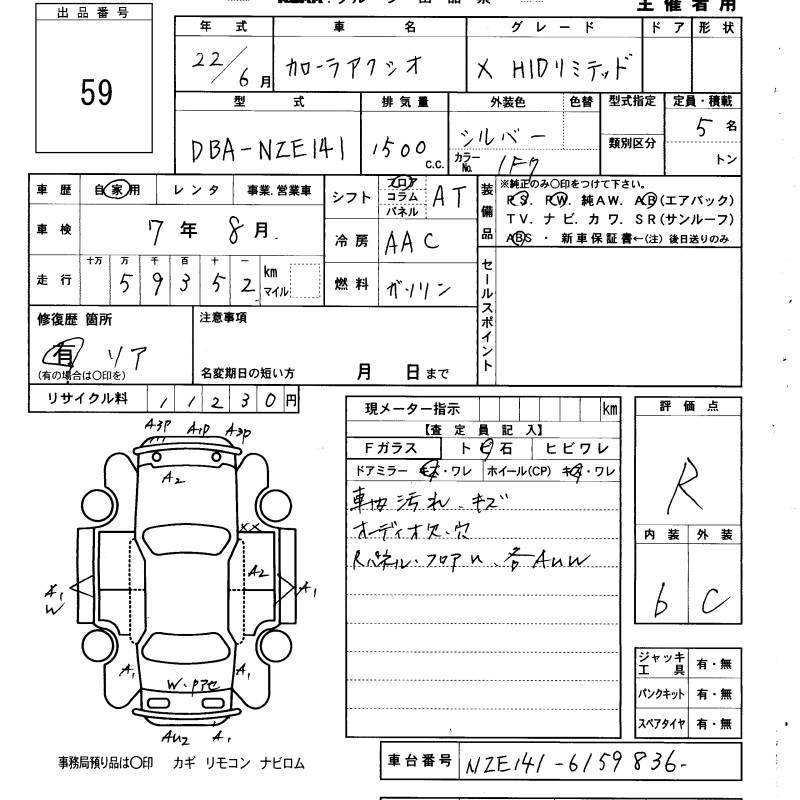 主催者用
出品番号
59
年式 車名 グレード ドア 形状
22/6月 カローラアクシオ X HIDリミテッド
型式 排気量 外装色 色替 型式指定 定員・積載
DBA-NZE141 1500 c.c. シルバー カラーNo. 1F7 類別区分 5名
トン
車歴 自家用 レンタ 事業.営業車 シフト フロア コラム パネル AT
装備品 ※純正のみ○印をつけて下さい。
P.S. P.W. 純AW. AB(エアバック)
TV. ナビ. カワ. SR(サンルーフ)
ABS ・ 新車保証書←(注) 後日送りのみ
車検 7年 8月 冷房 AAC
走行 十万 万 千 百 十 一
59352 km マイル 燃料 ガソリン
セールスポイント
修復歴 箇所
有 リア
(有の場合は○印を)
注意事項
名変期日の短い方 月 日まで
リサイクル料 11230円
現メーター指示 km
【査定員記入】
Fガラス ト ビ 石 ヒビワレ
ドアミラー キズ・ワレ ホイール(CP) キズ・ワレ
車内汚れ.キズ
オーディオ欠.穴
Rパネル・フロアU.各AUW
評価点
R
内装 外装
b C
ジャッキ工具 有・無
パンクキット 有・無
スペアタイヤ 有・無
A3P A1P A3P
A2
XX
A2
A1
W
A1
A1 A1
W.
AU2 A1
事務局預り品は○印 カギ リモコン ナビロム
車台番号 NZE141-6159836-